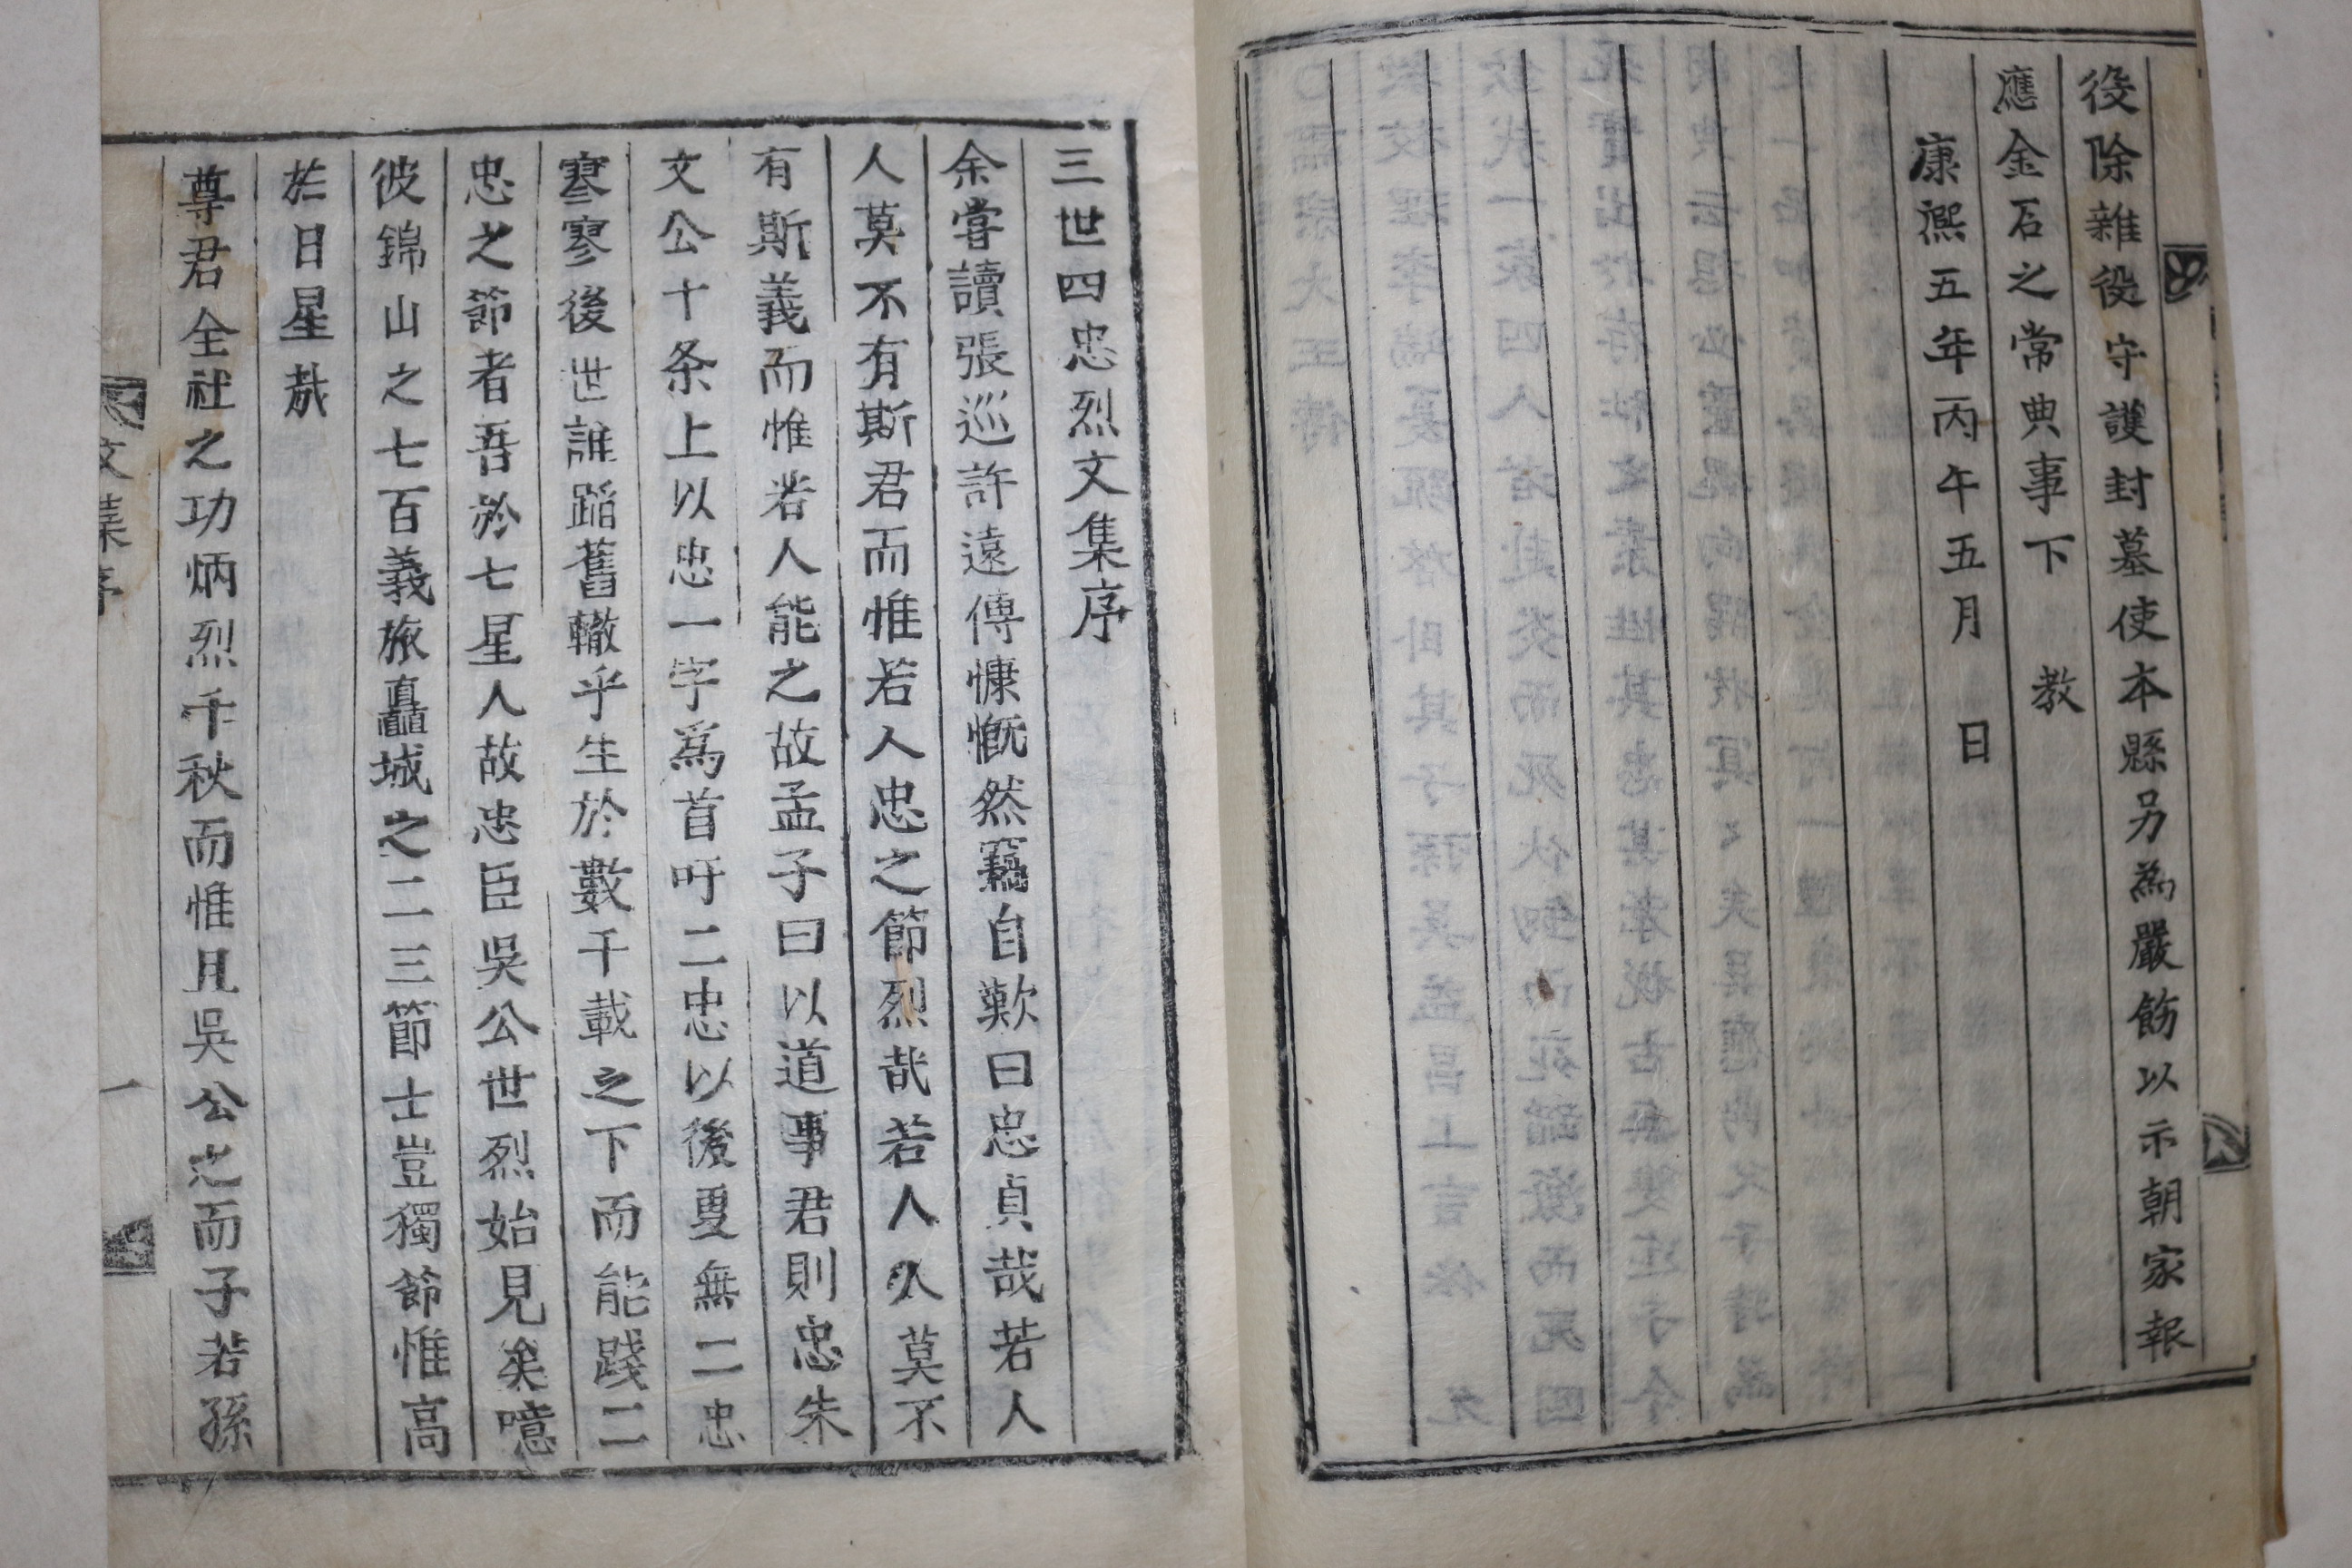 役除雜役守護封墓使本縣另為嚴飭以示朝家報
應金石之常典事下 教
康熙五年丙午五月 日
三世四忠烈文集序
余嘗讀張巡許遠傳慷慨然竊自歎曰忠貞哉若人
人莫不有斯君而惟若人忠之節烈哉若人人莫不
有斯義而惟若人能之故孟子曰以道事君則忠朱
文公十条上以忠一字爲首吁二忠以後更無二忠
寥寥後世誰蹈舊轍乎生於數千載之下而能踐二
忠之節者吾於七星人故忠臣吳公世烈始見矣噫
彼錦山之七百義旅矗城之二三節士豈獨節惟高
於日星哉
尊君全社之功炳烈千秋而惟且吳公之而子若孫
文集序
一